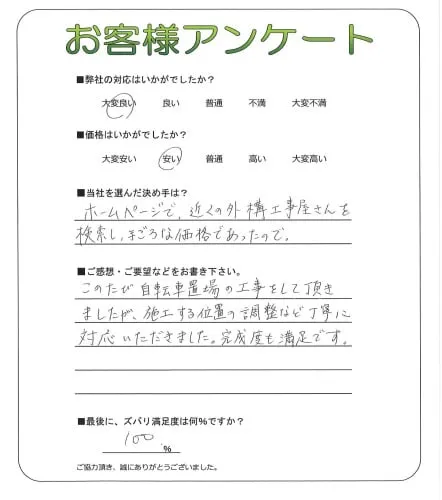 お客様アンケート
■弊社の対応はいかがでしたか?
大変良い 良い 普通 不満 大変不満
■価格はいかがでしたか?
大変安い 安い 普通 高い 大変高い
■当社を選んだ決め手は?
ホームページで、近くの外構工事屋さんを
検索し、手ごろな価格であったので。
■ご感想・ご要望などをお書き下さい。
このたび自転車置場の工事をして頂き
ましたが、施工する位置の調整など丁寧に
対応いただきました。完成度も満足です。
■最後に、ズバリ満足度は何%ですか?
100 %
ご協力頂き、誠にありがとうございました。